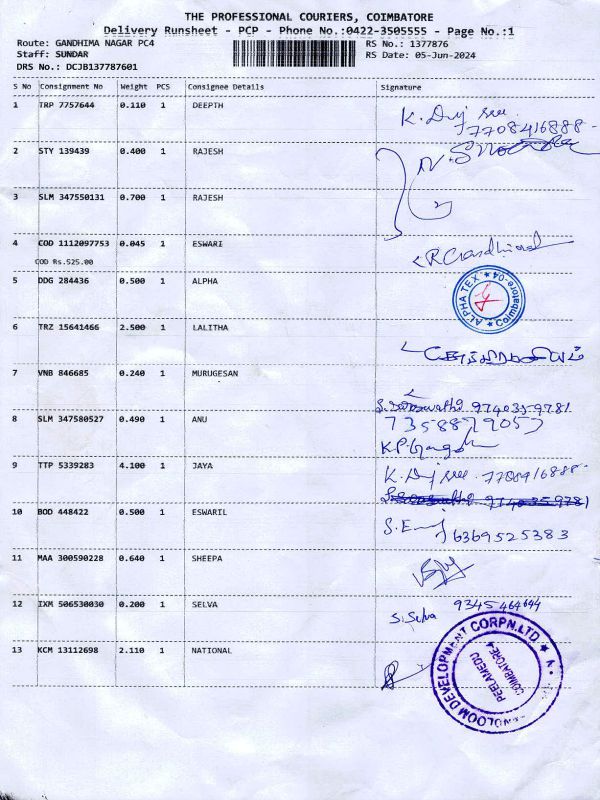 THE PROFESSIONAL COURIERS, COIMBATORE
Delivery Runsheet - PCP - Phone No.:0422-3505555 - Page No.:1
Route: GANDHIMA NAGAR PC4 RS No.: 1377876
Staff: SUNDAR RS Date: 05-Jun-2024
DRS No.: DCJB137787601
S No Consignment No Weight PCS Consignee Details Signature
1 TRP 7757644 0.110 1 DEEPTH
7708416888-
2 STY 139439 0.400 1 RAJESH
3 SLM 347550131 0.700 1 RAJESH
4 COD 1112097753 0.045 1 ESWARI
COD Rs.525.00
5 DDG 284436 0.500 1 ALPHA ALPHA TEX Coimbatore-04
6 TRZ 15641466 2.500 1 LALITHA
7 VNB 846685 0.240 1 MURUGESAN
974035-9781
8 SLM 347580527 0.490 1 ANU
9 TTP 5339283 4.100 1 JAYA
974035-9781
10 BOD 448422 0.500 1 ESWARIL
6369525383
11 MAA 300590228 0.640 1 SHEEPA
12 IXM 506530030 0.200 1 SELVA S. Selva 9345464644
13 KCM 13112698 2.110 1 NATIONAL
DEVELOPMENT CORPN.LTD
PEELAMEDU
COIMBATORE-4